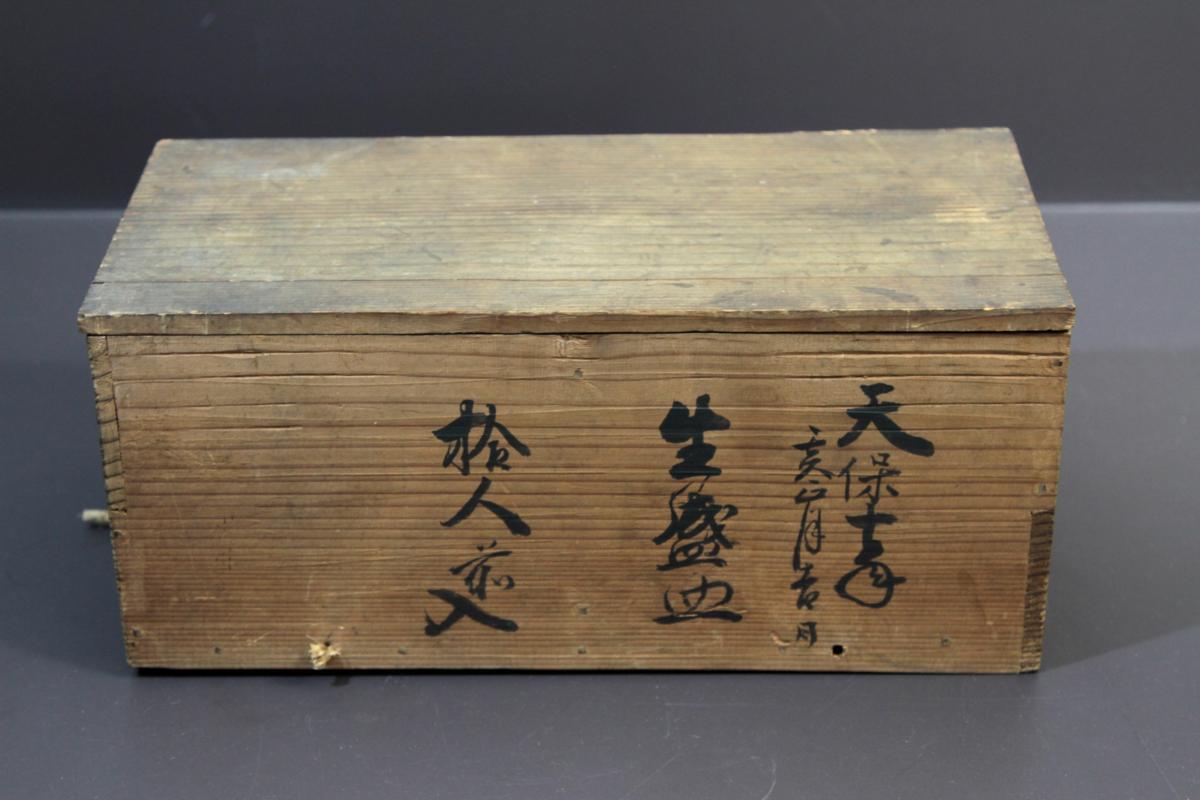 天保十年
亥正月吉日
生盛皿
拾人前入